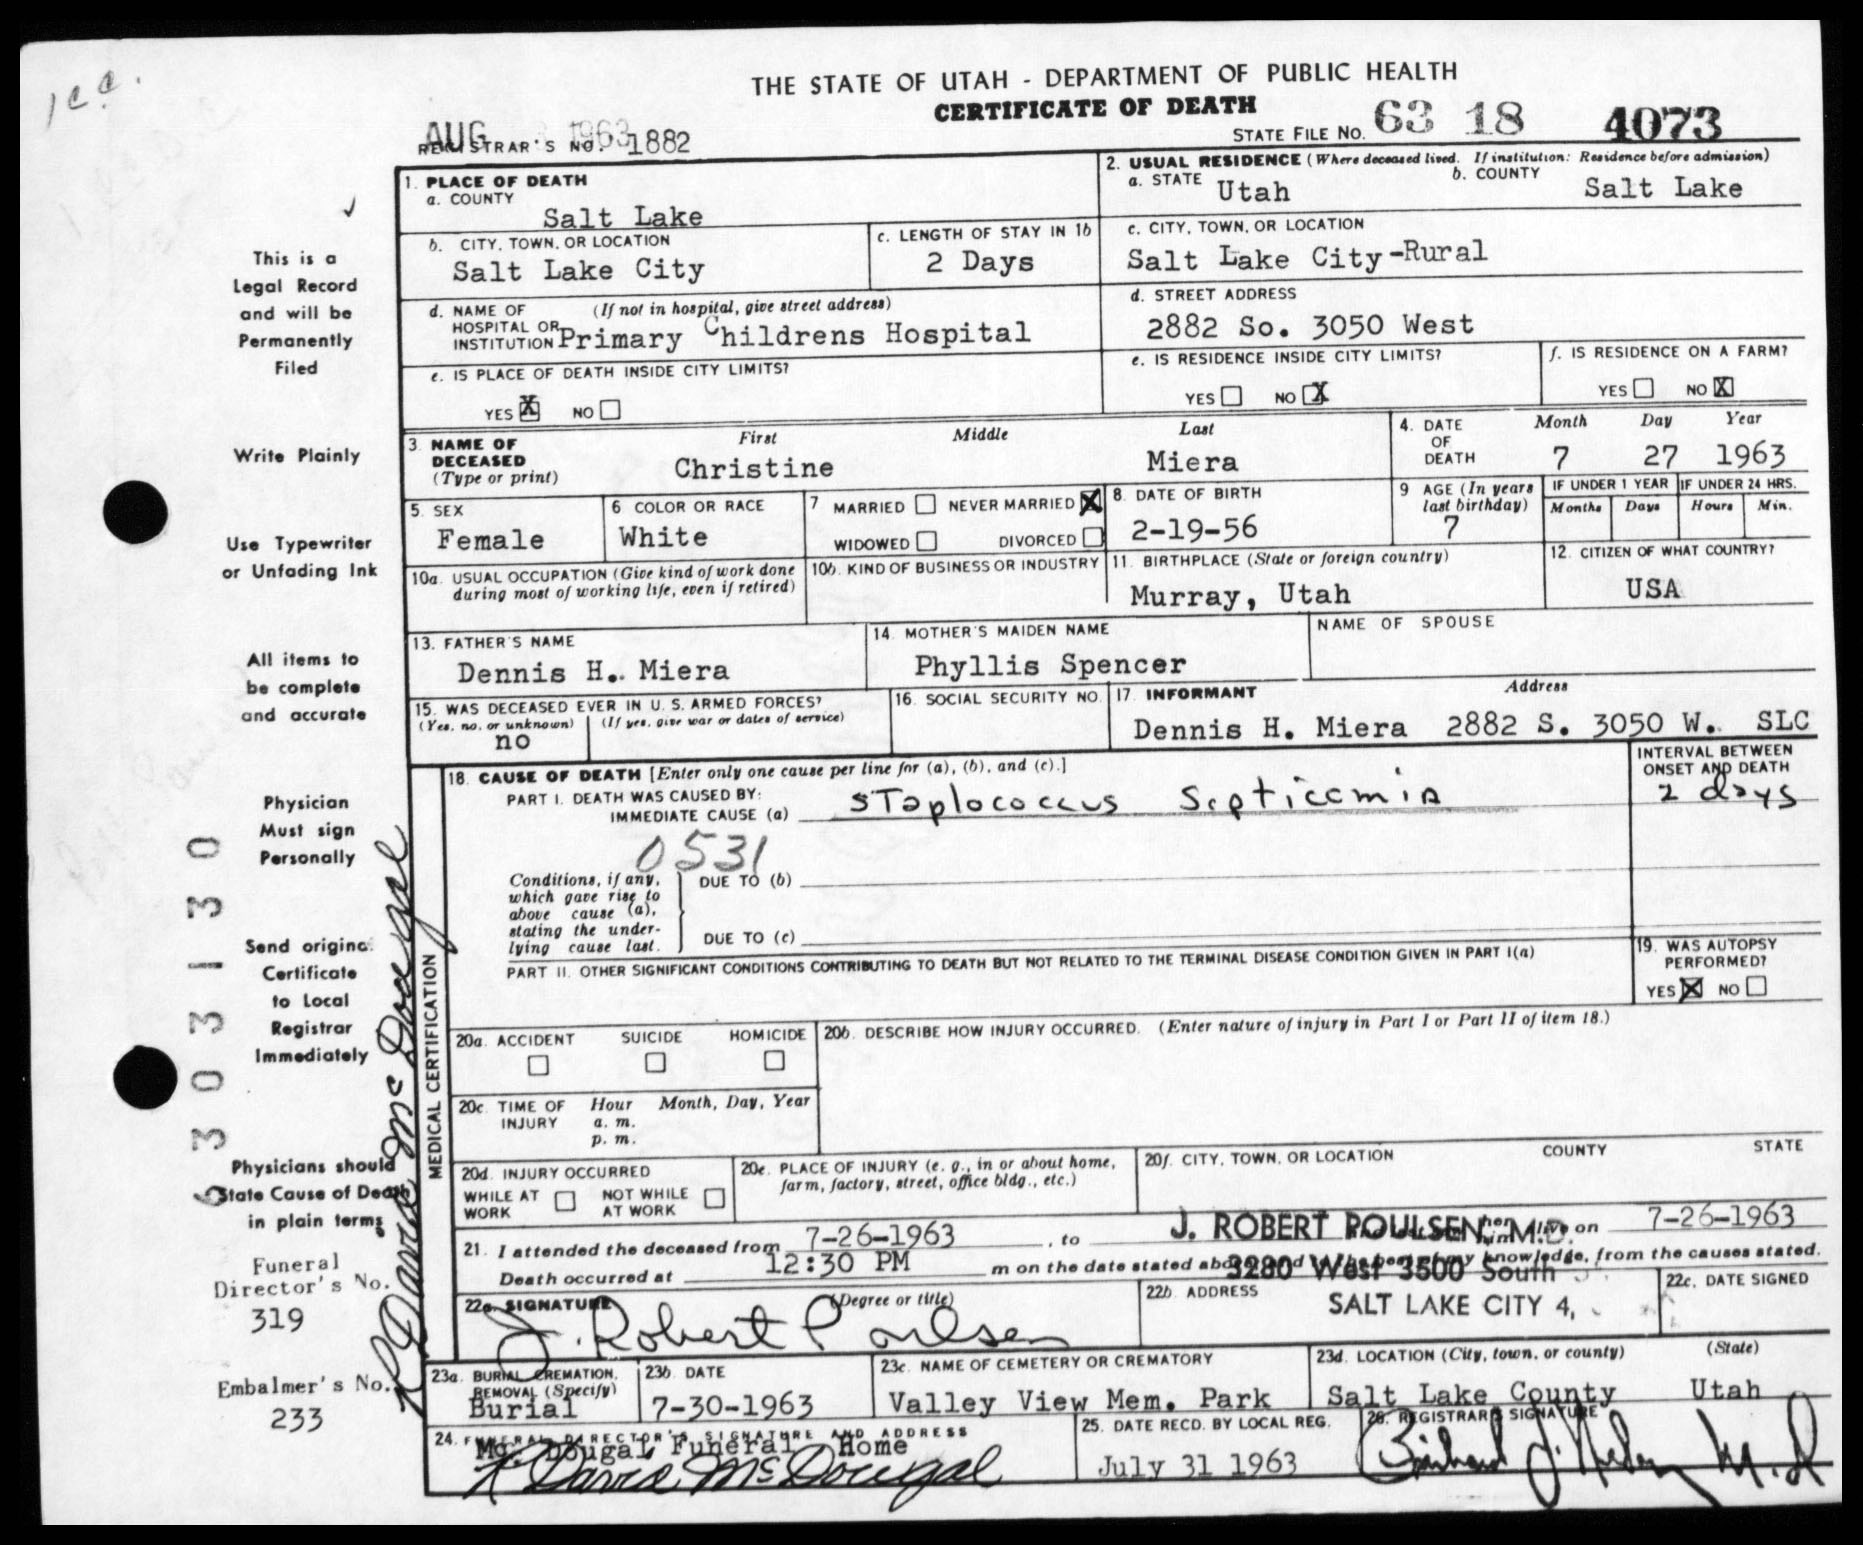 1cc.
THE STATE OF UTAH - DEPARTMENT OF PUBLIC HEALTH
CERTIFICATE OF DEATH
AUG 1963
REGISTRAR'S NO. 1882
STATE FILE NO. 63 18 4073
1. PLACE OF DEATH
a. COUNTY
Salt Lake
2. USUAL RESIDENCE (Where deceased lived. If institution: Residence before admission)
a. STATE Utah
b. COUNTY Salt Lake
b. CITY, TOWN, OR LOCATION
Salt Lake City
c. LENGTH OF STAY IN 1b
2 Days
c. CITY, TOWN, OR LOCATION
Salt Lake City-Rural
d. NAME OF HOSPITAL OR INSTITUTION (If not in hospital, give street address)
Primary Childrens Hospital
d. STREET ADDRESS
2882 So. 3050 West
e. IS PLACE OF DEATH INSIDE CITY LIMITS?
YES X NO
e. IS RESIDENCE INSIDE CITY LIMITS?
YES NO X
f. IS RESIDENCE ON A FARM?
YES NO X
3. NAME OF DECEASED (Type or print)
First Middle Last
Christine Miera
4. DATE OF DEATH
Month Day Year
7 27 1963
5. SEX
Female
6 COLOR OR RACE
White
7 MARRIED NEVER MARRIED X
WIDOWED DIVORCED
8. DATE OF BIRTH
2-19-56
9 AGE (In years last birthday)
7
IF UNDER 1 YEAR
Months Days
IF UNDER 24 HRS.
Hours Min.
10a. USUAL OCCUPATION (Give kind of work done during most of working life, even if retired)
10b. KIND OF BUSINESS OR INDUSTRY
11. BIRTHPLACE (State or foreign country)
Murray, Utah
12. CITIZEN OF WHAT COUNTRY?
USA
13. FATHER'S NAME
Dennis H. Miera
14. MOTHER'S MAIDEN NAME
Phyllis Spencer
NAME OF SPOUSE
15. WAS DECEASED EVER IN U. S. ARMED FORCES?
(Yes, no, or unknown) (If yes, give war or dates of service)
no
16. SOCIAL SECURITY NO.
17. INFORMANT Address
Dennis H. Miera 2882 S. 3050 W. SLC
MEDICAL CERTIFICATION
18. CAUSE OF DEATH [Enter only one cause per line for (a), (b), and (c).]
INTERVAL BETWEEN ONSET AND DEATH
PART I. DEATH WAS CAUSED BY:
IMMEDIATE CAUSE (a) Staplococcus Septicemia
2 days
0531
Conditions, if any, which gave rise to above cause (a), stating the underlying cause last.
DUE TO (b)
DUE TO (c)
PART II. OTHER SIGNIFICANT CONDITIONS CONTRIBUTING TO DEATH BUT NOT RELATED TO THE TERMINAL DISEASE CONDITION GIVEN IN PART I(a)
19. WAS AUTOPSY PERFORMED?
YES X NO
20a. ACCIDENT SUICIDE HOMICIDE
20b. DESCRIBE HOW INJURY OCCURRED. (Enter nature of injury in Part I or Part II of item 18.)
20c. TIME OF INJURY
Hour Month, Day, Year
a. m.
p. m.
20d. INJURY OCCURRED
WHILE AT WORK NOT WHILE AT WORK
20e. PLACE OF INJURY (e. g., in or about home, farm, factory, street, office bldg., etc.)
20f. CITY, TOWN, OR LOCATION COUNTY STATE
21. I attended the deceased from 7-26-1963, to alive on 7-26-1963
Death occurred at 12:30 PM m on the date stated above my knowledge, from the causes stated.
J. ROBERT POULSEN, M.D.
3280 West 3500 South
SALT LAKE CITY 4,
22a. SIGNATURE (Degree or title)
J. Robert Poulsen
22b. ADDRESS
22c. DATE SIGNED
23a. BURIAL, CREMATION, REMOVAL (Specify)
Burial
23b. DATE
7-30-1963
23c. NAME OF CEMETERY OR CREMATORY
Valley View Mem. Park
23d. LOCATION (City, town, or county) (State)
Salt Lake County Utah
24. FUNERAL DIRECTOR'S SIGNATURE AND ADDRESS
Mc. Dougal Funeral Home
K. David McDougal
25. DATE RECD. BY LOCAL REG.
July 31 1963
26. REGISTRAR'S SIGNATURE
This is a
Legal Record
and will be
Permanently
Filed
Write Plainly
Use Typewriter
or Unfading Ink
All items to
be complete
and accurate
Physician
Must sign
Personally
Send original
Certificate
to Local
Registrar
Immediately
Physicians should
State Cause of Death
in plain terms
Funeral
Director's No.
319
Embalmer's No.
233
K David McDougal